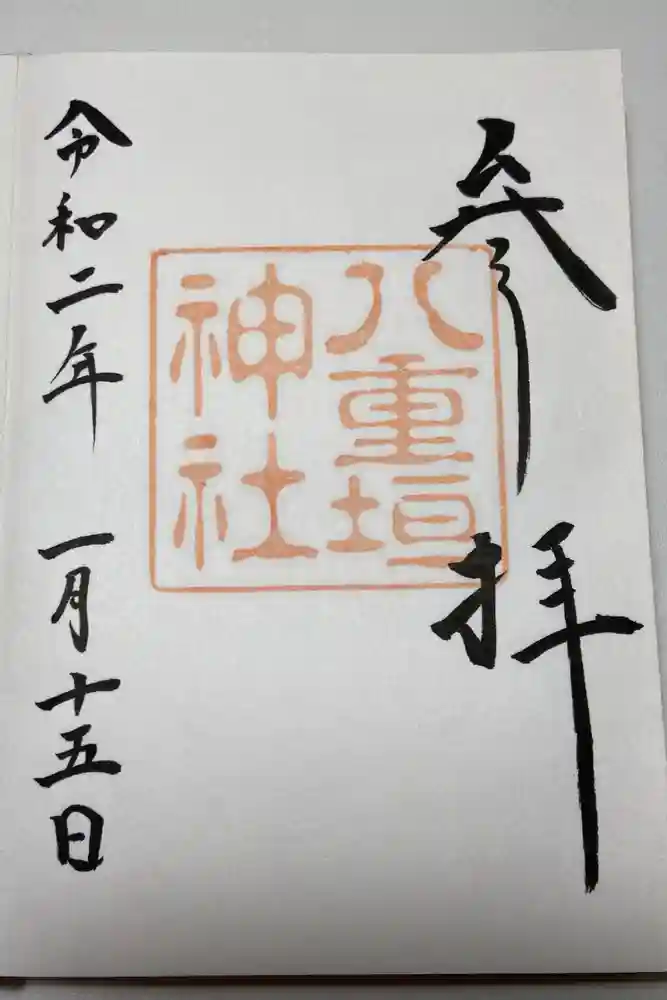 参拝
八重垣
神社
令和二年 一月十五日